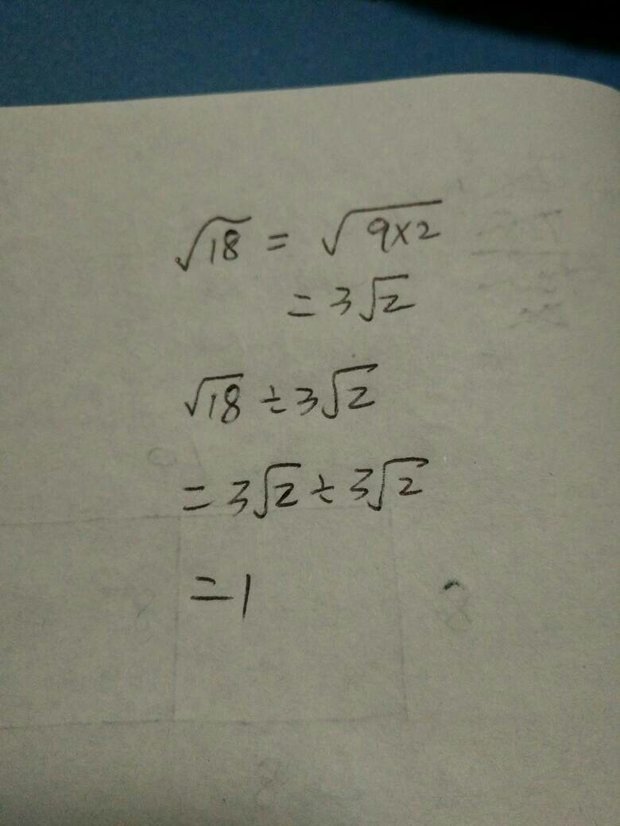 √18 = √9×2
= 3√2
√18 ÷ 3√2
= 3√2 ÷ 3√2
= 1